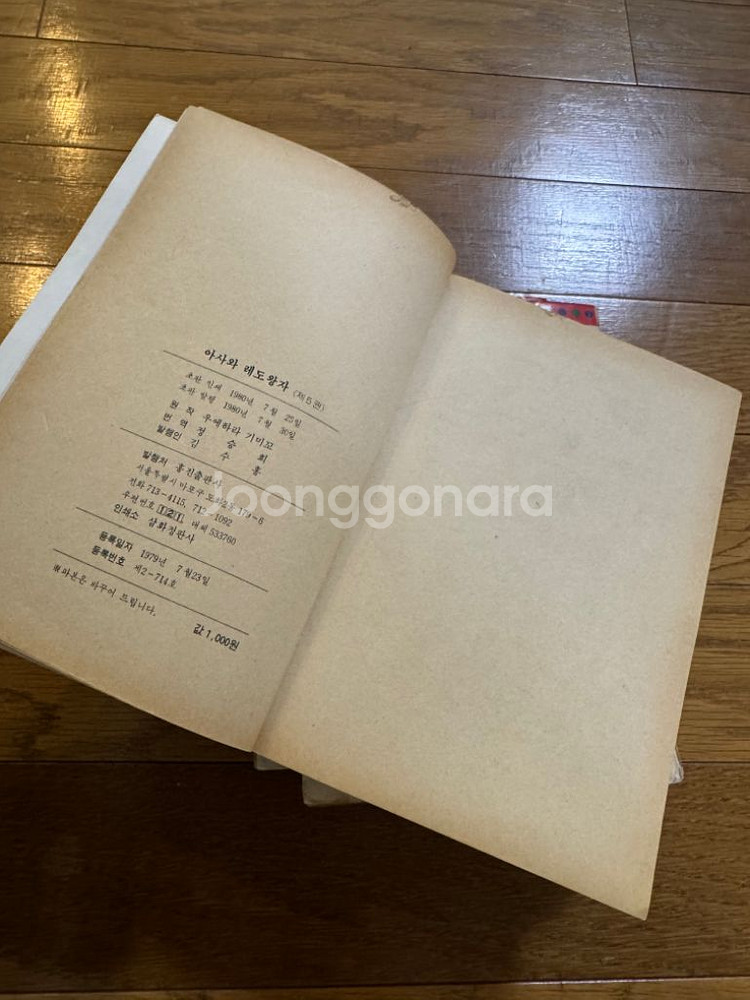 아사와 레도왕자 (제5권)
초판 인쇄 1980년 7월 25일
초판 발행 1980년 7월 30일
원 작 우에하라 기미꼬
번 역 정 승 희
발행인 김 수 흥
발행처 흥진출판사
서울특별시 마포구 도화2동 179-6
전화 713-4115, 712-1092
우편번호 121, 대체 533760
인쇄소 삼화정판사
등록일자 1979년 7월 23일
등록번호 제2-714호
※파본은 바꾸어 드립니다.
값 1,000원
Joonggonara